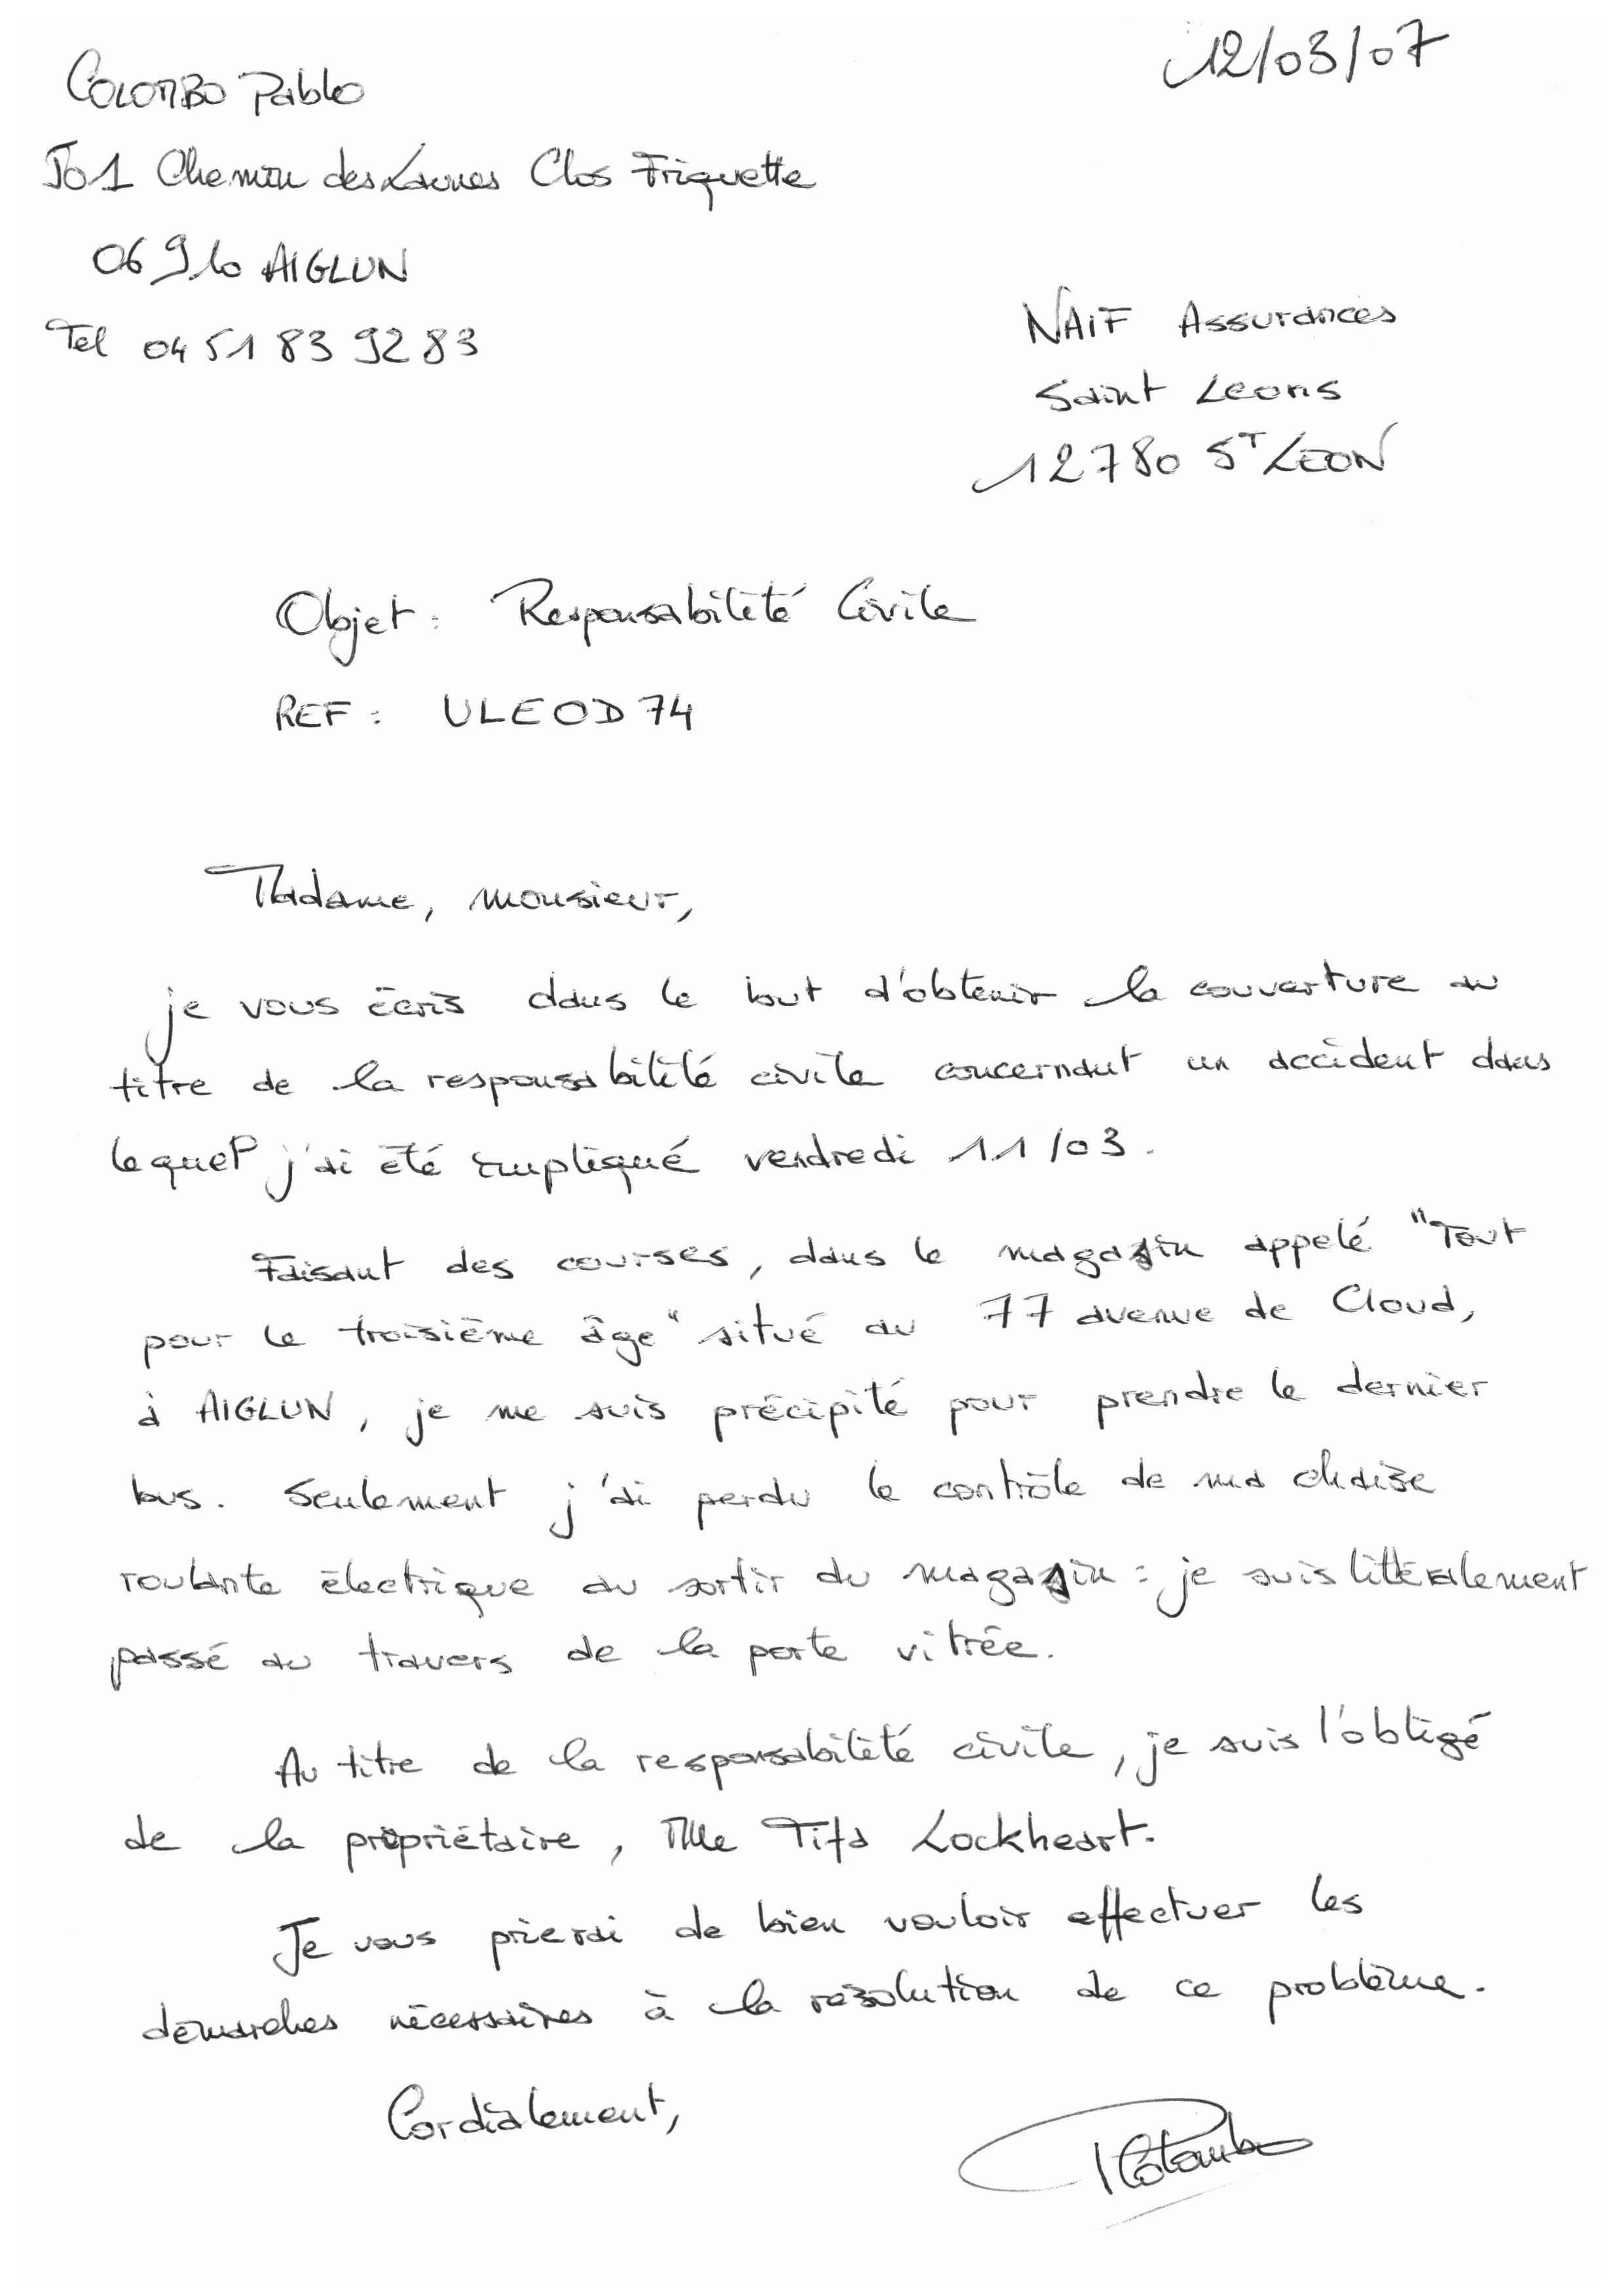 12/03/07
COLOMBO Pablo
J01 Chemin des Launes Clos Friquette
06910 AIGLUN
Tel 04 51 83 92 83
NAiF Assurances
Saint Leons
12780 ST LEON
Objet : Responsabilité Civile
REF : ULEOD74
Madame, monsieur,
je vous écris dans le but d'obtenir la couverture au
titre de la responsabilité civile concernant un accident dans
lequel j'ai été impliqué vendredi 11/03.
Faisant des courses, dans le magasin appelé "Tout
pour le troisième âge" situé au 77 avenue de Cloud,
à AIGLUN, je me suis précipité pour prendre le dernier
bus. Seulement j'ai perdu le contrôle de ma chaise
roulante électrique au sortir du magasin : je suis littéralement
passé au travers de la porte vitrée.
Au titre de la responsabilité civile, je suis l'obligé
de la propriétaire, Mlle Tifa Lockheart.
Je vous prierai de bien vouloir effectuer les
démarches nécessaires à la résolution de ce problème.
Cordialement,
PColombo